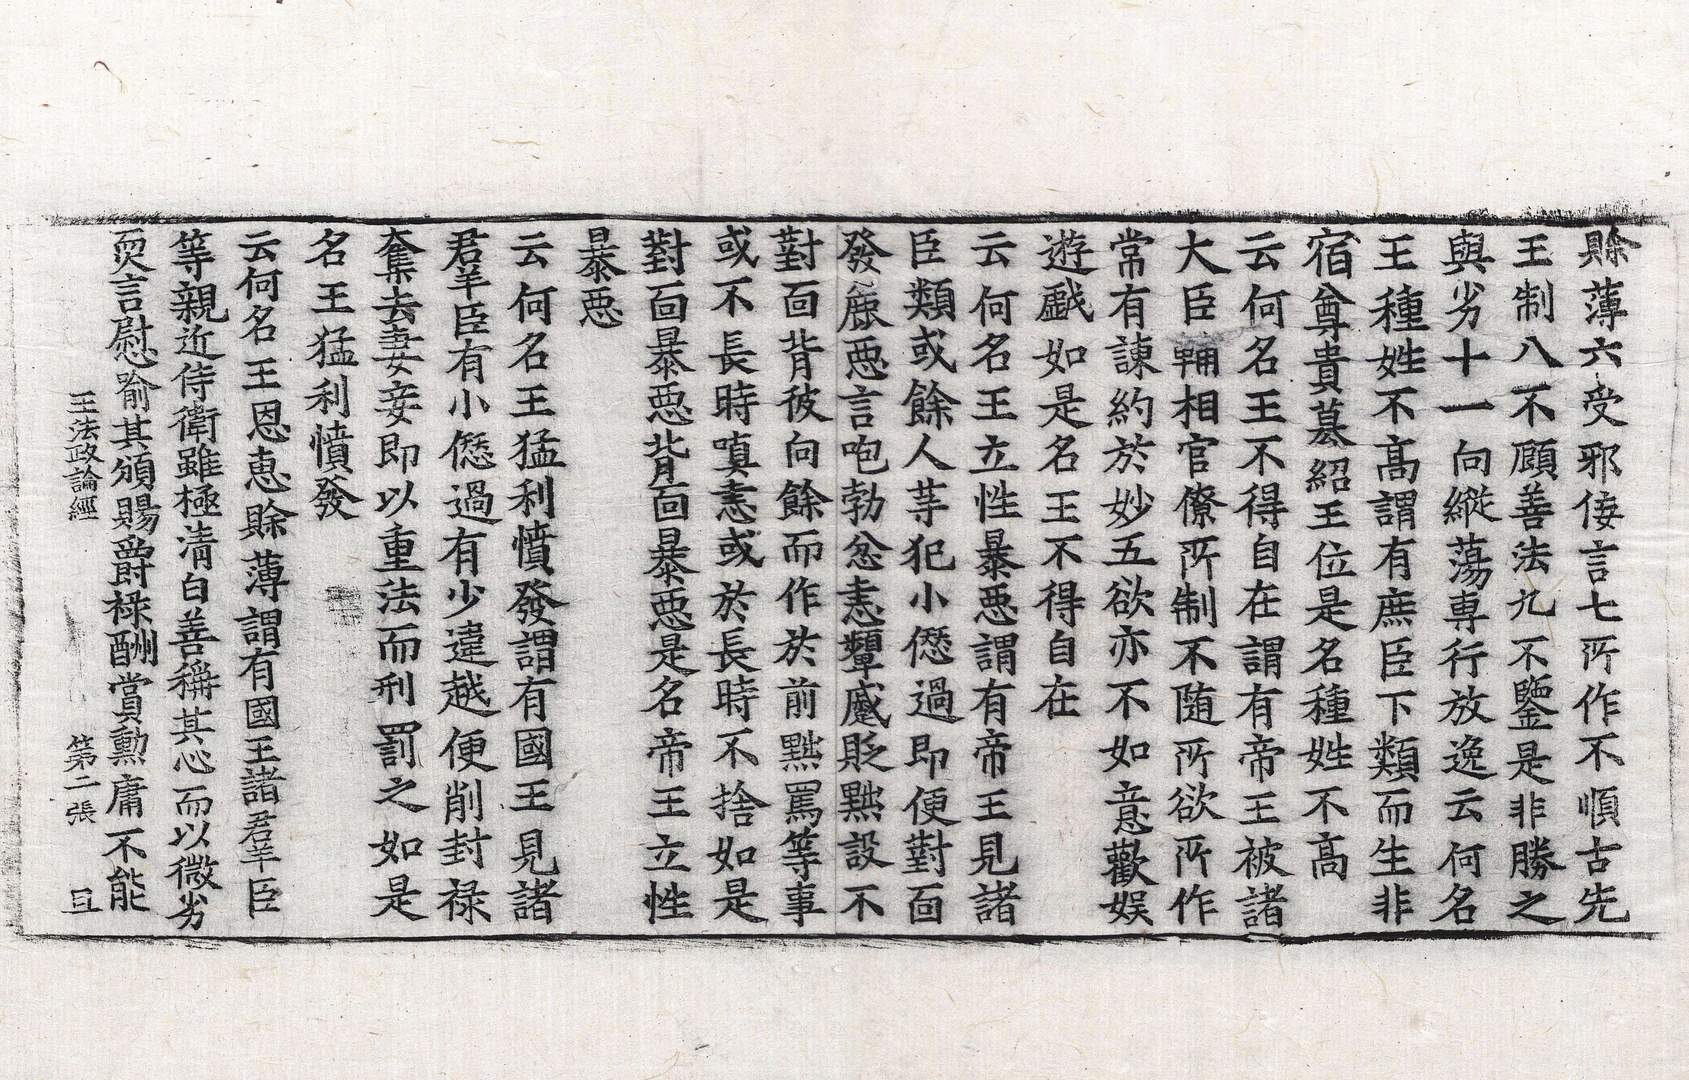 賖薄六受邪佞言七所作不順古先
王制八不顧善法九不鑒是非勝之
與劣十一向縱蕩專行放逸云何名
王種姓不高謂有庶臣下類而生非
宿尊貴墓紹王位是名種姓不高
云何名王不得自在謂有帝王被諸
大臣輔相官僚所制不随所欲所作
常有諫約於妙五欲亦不如意歡娛
遊戱如是名王不得自在
云何名王立性暴惡謂有帝王見諸
臣類或餘人等犯小僽過即便對面
發麁惡言咆勃忿恚顰蹙貶黜設不
對面背彼向餘而作於前黜罵等事
或不長時嗔恚或於長時不捨如是
對面暴惡背面暴惡是名帝王立性
暴惡
云何名王猛利憤發謂有國王見諸
君羊臣有小僽過有少違越便削封禄
奪去妻妾即以重法而刑罰之如是
名王猛利憤發
云何名王恩惠賖薄謂有國王諸君羊臣
等親近侍衛雖極清白善稱其心而以微劣
耎言慰喻其頒賜爵禄酬賞勳庸不能
王法政論經 第二張 且